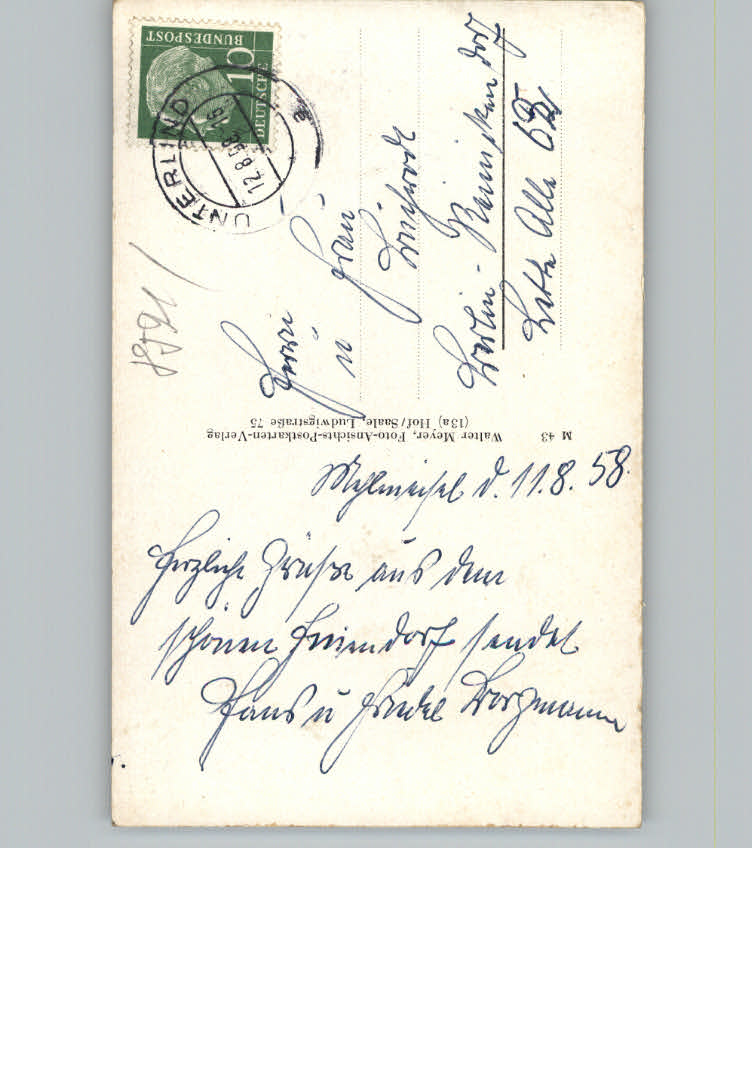 Mehlmeisel d. 11.8.58.
Herzliche Grüße aus dem
schönen Feriendorf sendet
Hans u Friedel
Herrn
u Frau
Berlin-Reinickendorf
Lette Alle
DEUTSCHE
BUNDESPOST
10
UNTERLIND
12.8.58
M 43
Walter Meyer, Foto-Ansichts-Postkarten-Verlag
(13a) Hof/Saale, Ludwigstraße 75